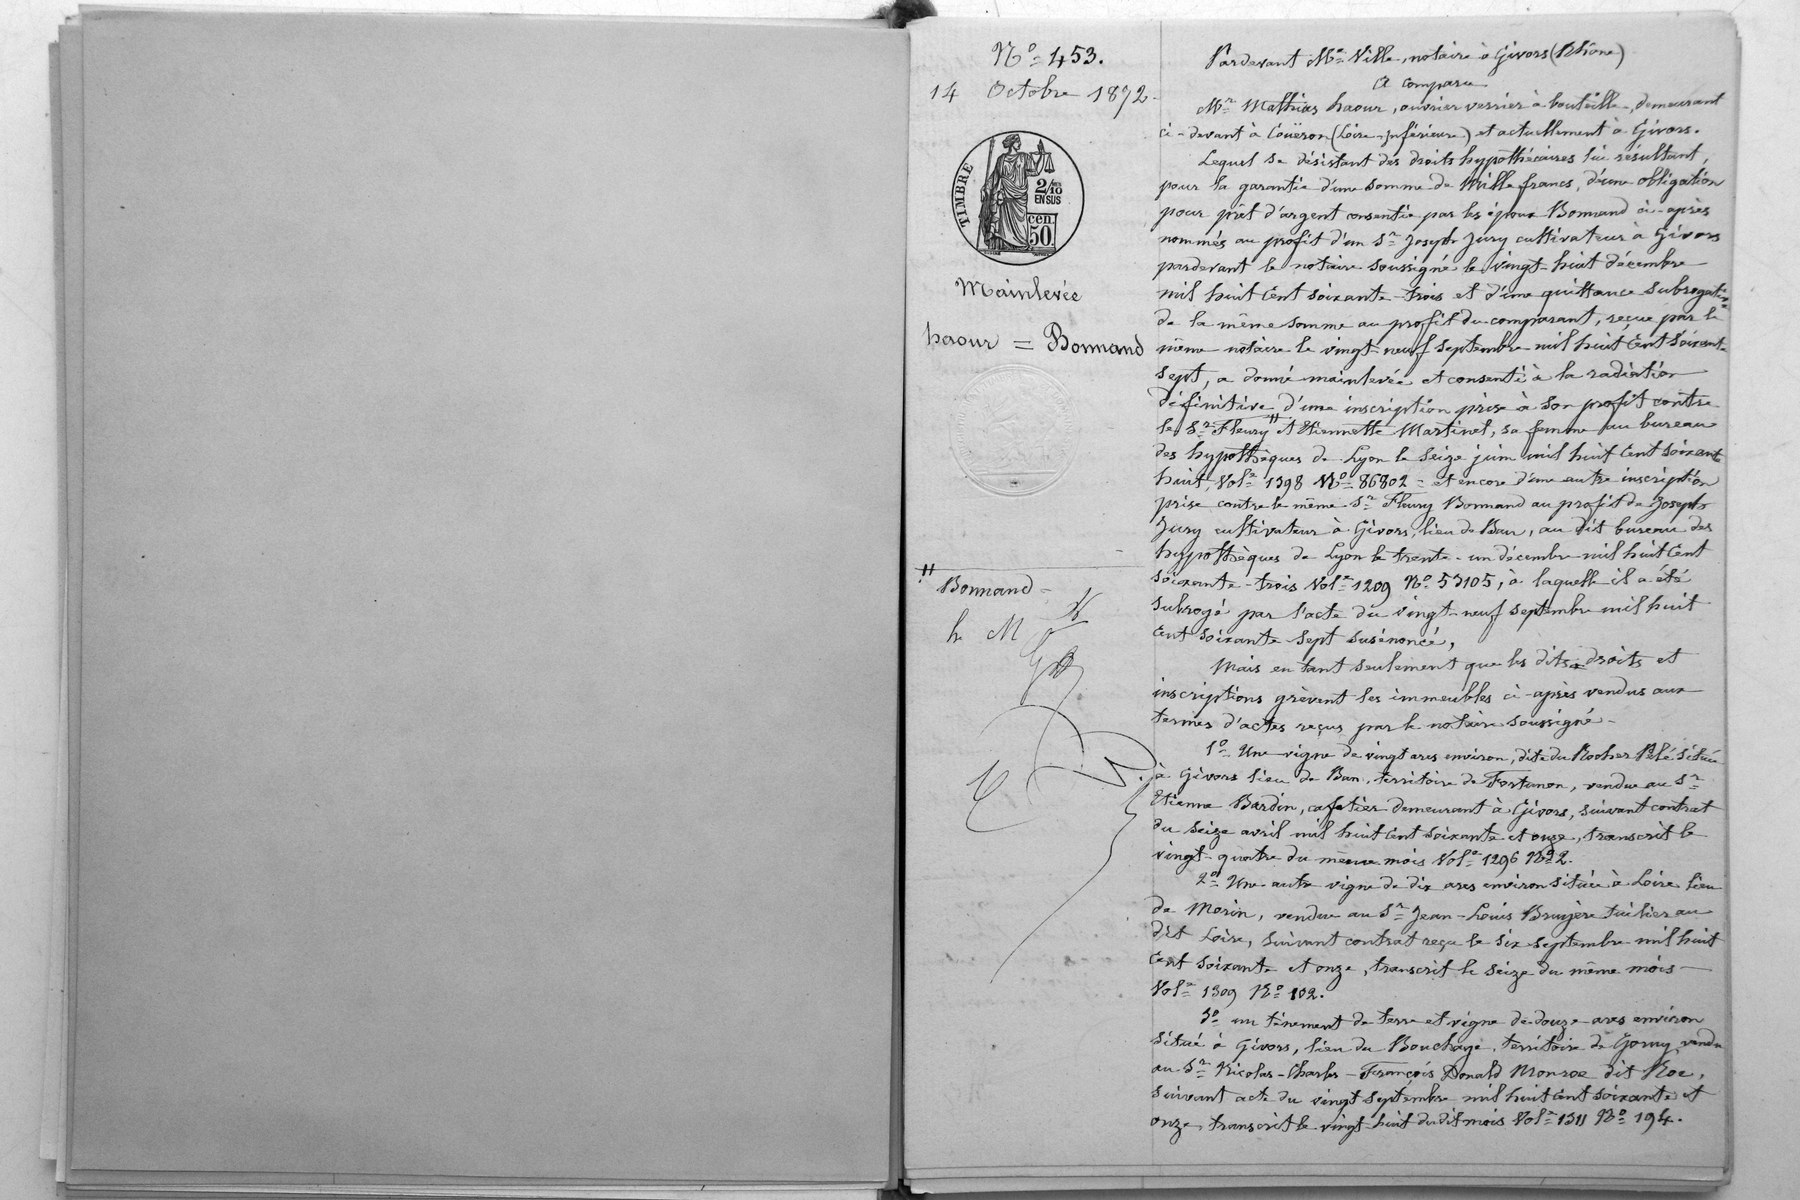 N° 453.
14 Octobre 1872.
TIMBRE
2/10 EN SUS
cen. 50.
Mainlevée
haour = Bonnand
" Bonnand -
h M
Pardevant Me Ville, notaire à Givors (Rhône)
A comparu
Mr Mathias haour, ouvrier verrier à bouteille, demeurant
ci-devant à Couëron (Loire-inférieure) et actuellement à Givors.
Lequel se désistant des droits hypothécaires lui résultant,
pour la garantie d'une somme de Mille francs, d'une obligation
pour prêt d'argent consentie par les époux Bonnand ci-après
nommés au profit d'un Sr Joseph Jury cultivateur à Givors
pardevant le notaire soussigné le vingt-huit décembre
mil huit cent soixante-trois et d'une quittance subrogative
de la même somme au profit du comparant, reçue par le
même notaire le vingt-neuf septembre mil huit cent soixante
sept, a donné mainlevée et consenti à la radiation
définitive d'une inscription prise à son profit contre
le Sr Fleury " et Etiennette Martinet, sa femme au bureau
des hypothèques de Lyon le seize juin mil huit cent soixante
huit, Vole 1398 N° 86802 = et encore d'une autre inscription
prise contre le même Sr Fleury Bonnand au profit de Joseph
Jury cultivateur à Givors, lieu de Ban, au dit bureau des
hypothèques de Lyon le trente-un décembre mil huit cent
soixante-trois Vole 1209 N° 53105, à laquelle il a été
subrogé par l'acte du vingt-neuf septembre mil huit
cent soixante sept susénoncé,
Mais en tant seulement que les dits droits et
inscriptions grèvent les immeubles ci-après vendus aux
termes d'actes reçus par le notaire soussigné -
1° Une vigne de vingt ares environ, dite du Rocher Pelé située
à Givors lieu de Ban, territoire de Fortunon, vendue au Sr
Etienne Bardin, cafetier demeurant à Givors, suivant contrat
du seize avril mil huit cent soixante et onze, transcrit le
vingt-quatre du même mois Vole 1296 N° 2.
2° Une autre vigne de dix ares environ située à Loire lieu
de Morin, vendue au Sr Jean-Louis Bruyère tuilier au
dit Loire, suivant contrat reçu le six septembre mil huit
cent soixante et onze, transcrit le seize du même mois -
Vole 1309 N° 102.
3° un tènement de terre et vigne de douze ares environ
situé à Givors, lieu du Bouchage, territoire de Gorny, vendu
au Sr Nicolas-Charles-François Donald Monroe dit Roe,
suivant acte du vingt septembre mil huit cent soixante et
onze, transcrit le vingt-huit du dit mois Vole 1311 N° 194.